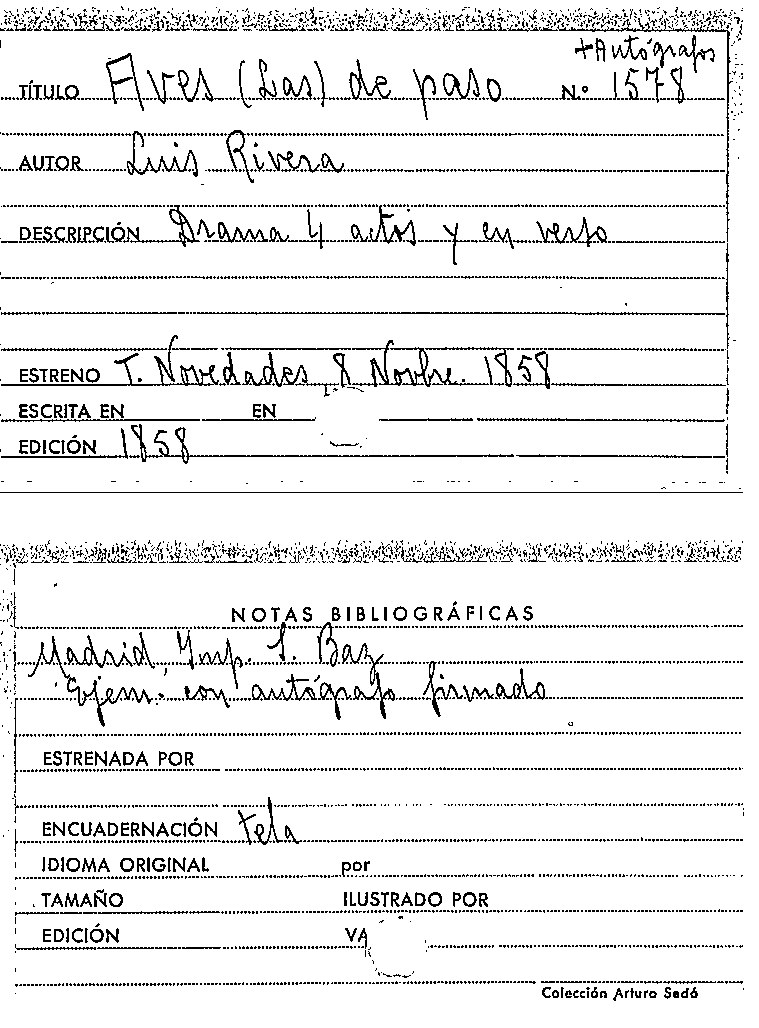 +Autógrafos
TÍTULO Aves (Las) de paso N.º 1578
AUTOR Luis Rivera
DESCRIPCIÓN Drama 4 actos y en verso
ESTRENO T. Novedades 8 Novbre. 1858
ESCRITA EN EN
EDICIÓN 1858
NOTAS BIBLIOGRÁFICAS
Madrid, Imp. S. Baz
Ejem. con autógrafo firmado
ESTRENADA POR
ENCUADERNACIÓN tela
IDIOMA ORIGINAL por
TAMAÑO ILUSTRADO POR
EDICIÓN VA
Colección Arturo Sedó